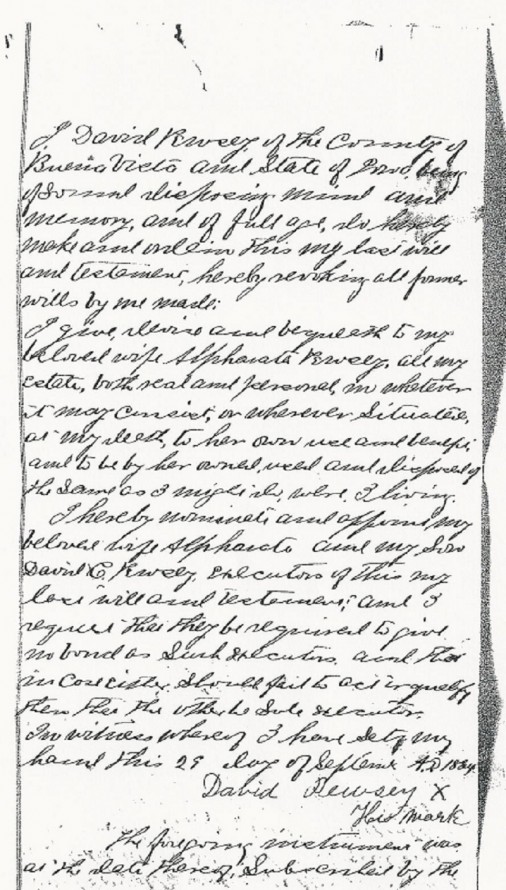 I David Kewsey of the County of
Buena Vista and State of Iowa, being
of sound disposing mind and
memory, and of full age, do hereby
make and ordain this my last will
and testament, hereby revoking all former
wills by me made:
I give, devise and bequeath to my
beloved wife Alpharata Kewsey, all my
estate, both real and personal, in whatever
it may consist, or wherever situated,
at my death, to her own use and benefit,
and to be by her owned, used and disposed of
the same as I might do, were I living.
I hereby nominate and appoint my
beloved wife Alpharata and my Son
David C. Kewsey executors of this my
last will and testament; and I
request that they be required to give
no bond as such executors and that
in case either should fail to act or qualify
then that the other be sole executor.
In witness whereof I have set my
hand this 29 day of Septem A.D. 1884
David Kewsey X
His mark
The foregoing instrument was
at the date thereof, Subscribed by the